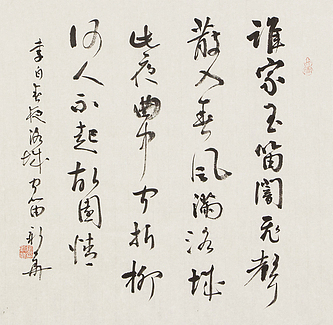 誰家玉笛闇飛聲
散入春風滿洛城
此夜曲中聞折柳
何人不起故園情
李白春夜洛城聞笛